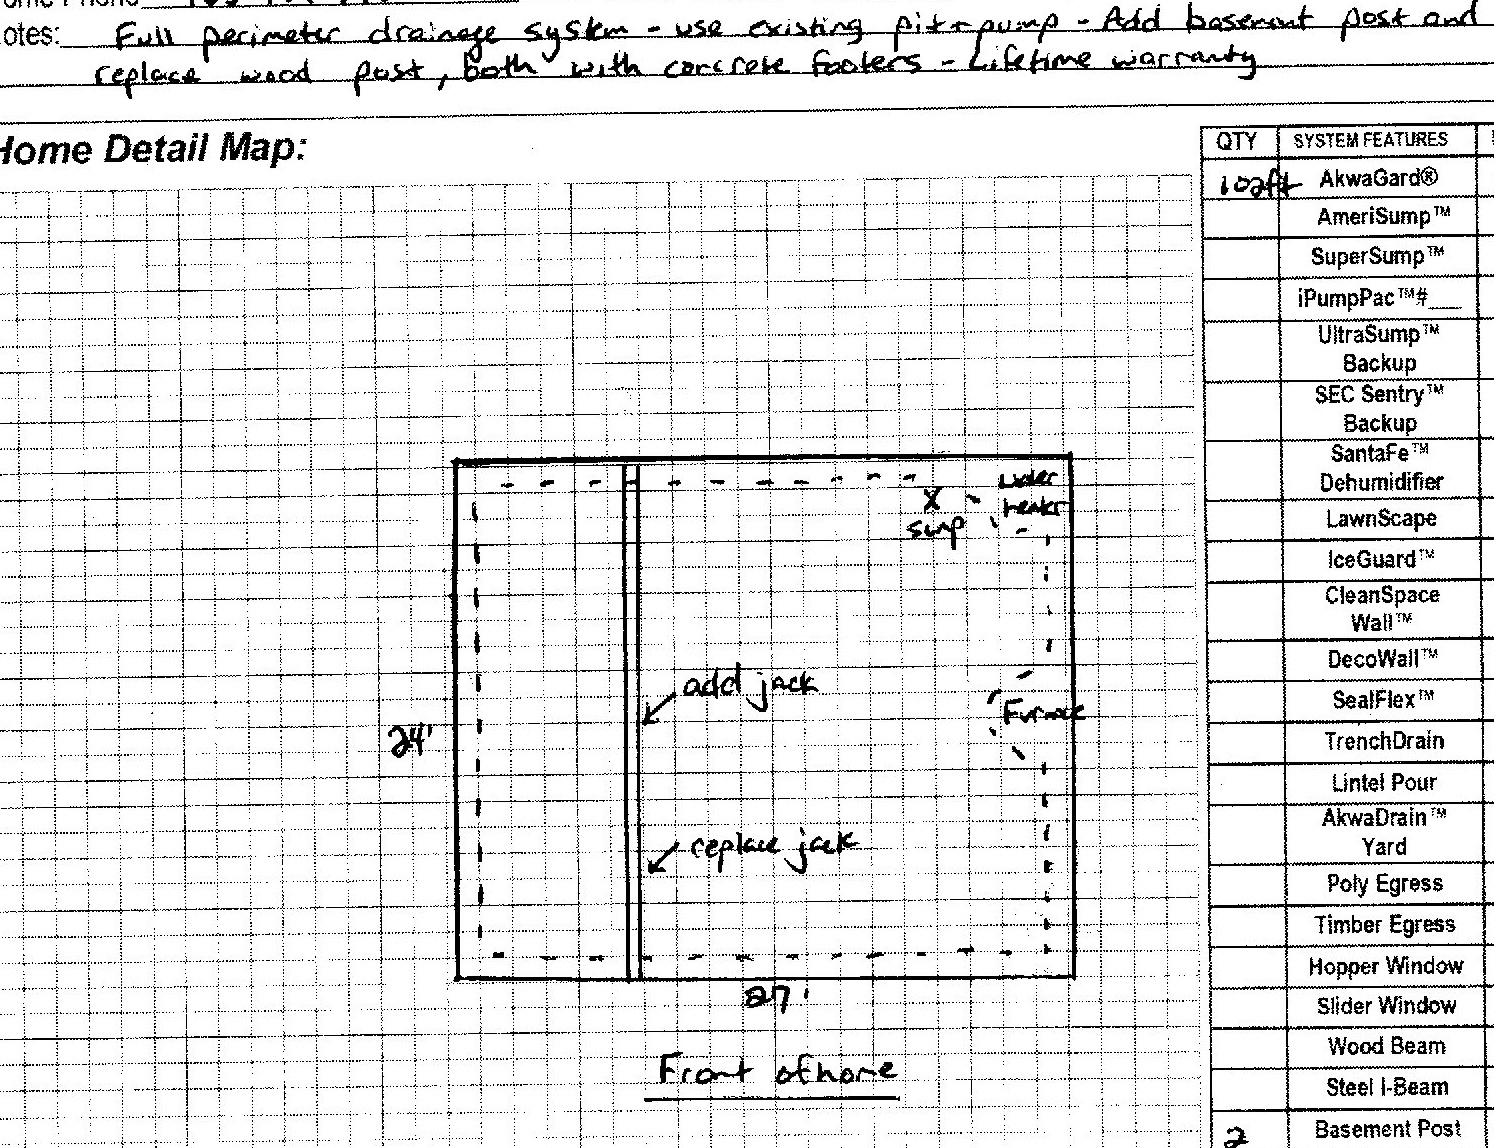 otes: Full perimeter drainage system - use existing pit + pump - Add basement post and
replace wood post, both with concrete footers - Lifetime warranty
Home Detail Map:
QTY SYSTEM FEATURES
102ft AkwaGard®
AmeriSump™
SuperSump™
iPumpPac™#___
UltraSump™
Backup
SEC Sentry™
Backup
SantaFe™
Dehumidifier
LawnScape
IceGuard™
CleanSpace
Wall™
DecoWall™
SealFlex™
TrenchDrain
Lintel Pour
AkwaDrain™
Yard
Poly Egress
Timber Egress
Hopper Window
Slider Window
Wood Beam
Steel I-Beam
2 Basement Post
water
heater
X
sump
add jack
Furnace
24'
replace jack
27'
Front of home